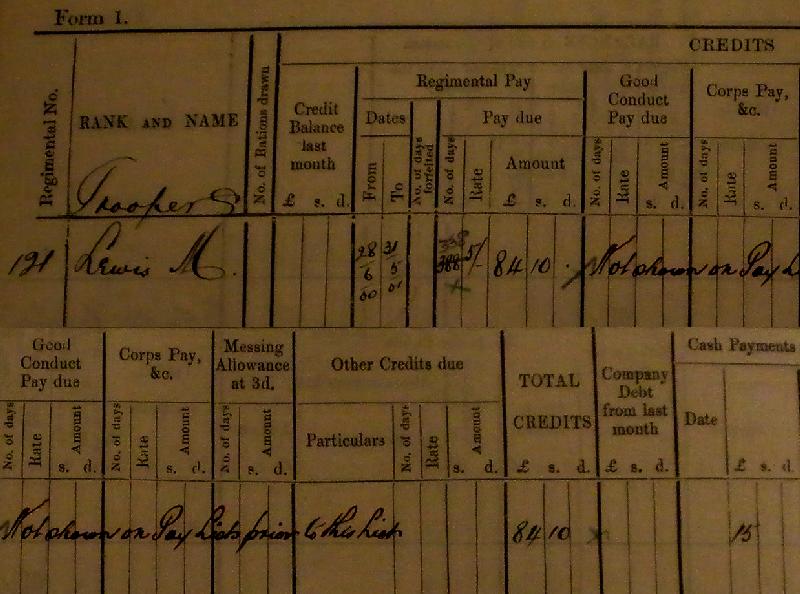 Form 1.
CREDITS
Regimental No.
RANK AND NAME
No. of Rations drawn
Credit Balance last month
Regimental Pay
Good Conduct Pay due
Corps Pay, &c.
Dates
From
To
No. of days forfeited
Pay due
No. of days
Rate
Amount
No. of days
Rate
Amount
No. of days
Rate
Amount
£ s. d.
£ s. d.
s. d.
s. d.
Troopers
121 Lewis M. 28/6/00 31/5/01 338 5/- 84 10 . Not shown on Pay L
Good Conduct Pay due
Corps Pay, &c.
Messing Allowance at 3d.
Other Credits due
TOTAL CREDITS
Company Debt from last month
Cash Payments
No. of days
Rate
Amount
No. of days
Rate
Amount
No. of days
Amount
Particulars
No. of days
Rate
Amount
Date
s. d.
s. d.
s. d.
s. d.
£ s. d.
£ s. d.
£ s. d.
Not shown on Pay Lists prior to this List 84 10 15